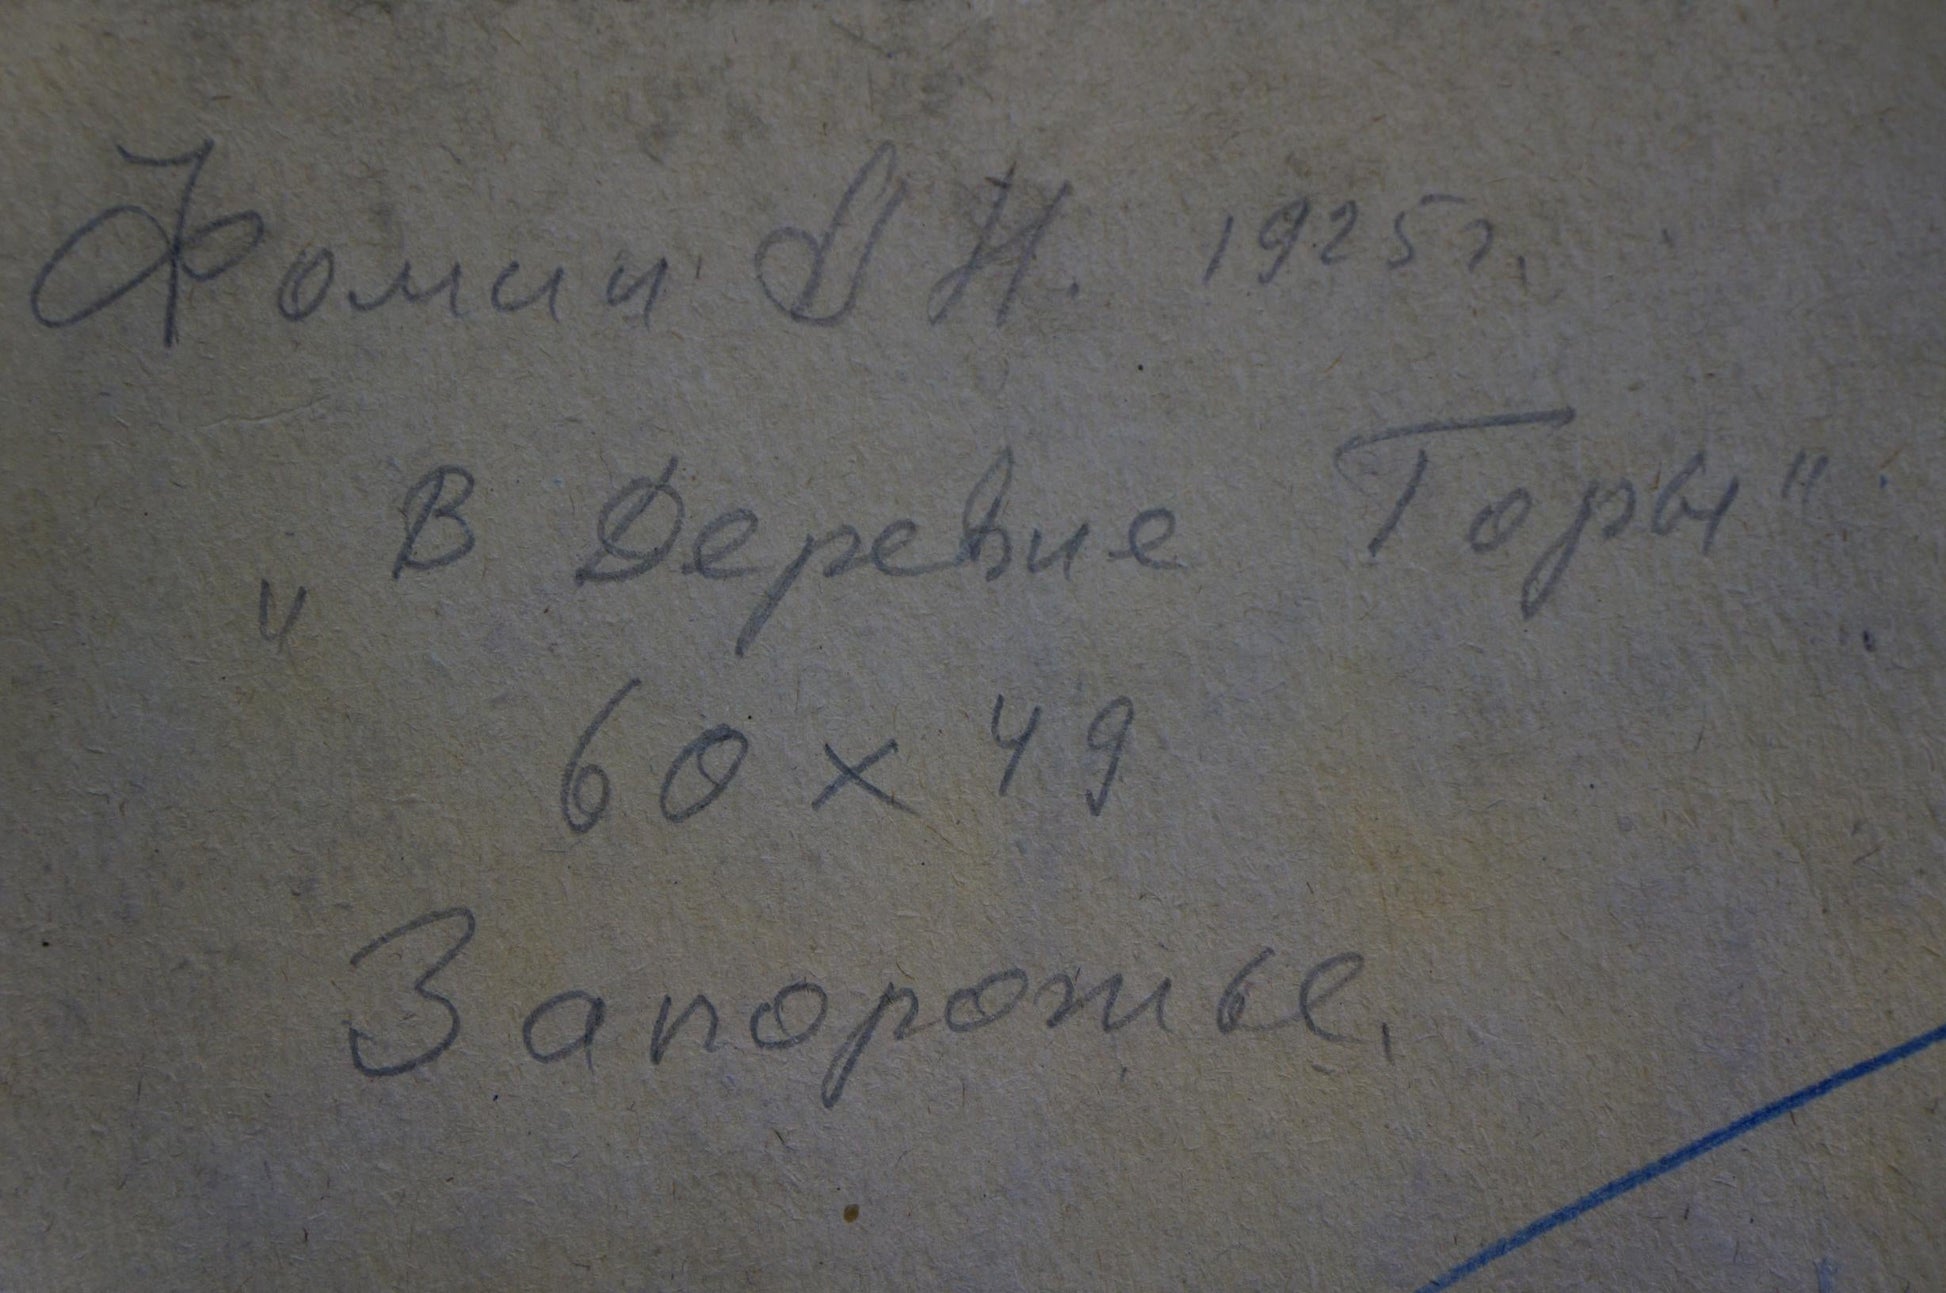 Фомин Д Н. 1925г.
„В Деревне Горы"
60 x 49
Запорожье,